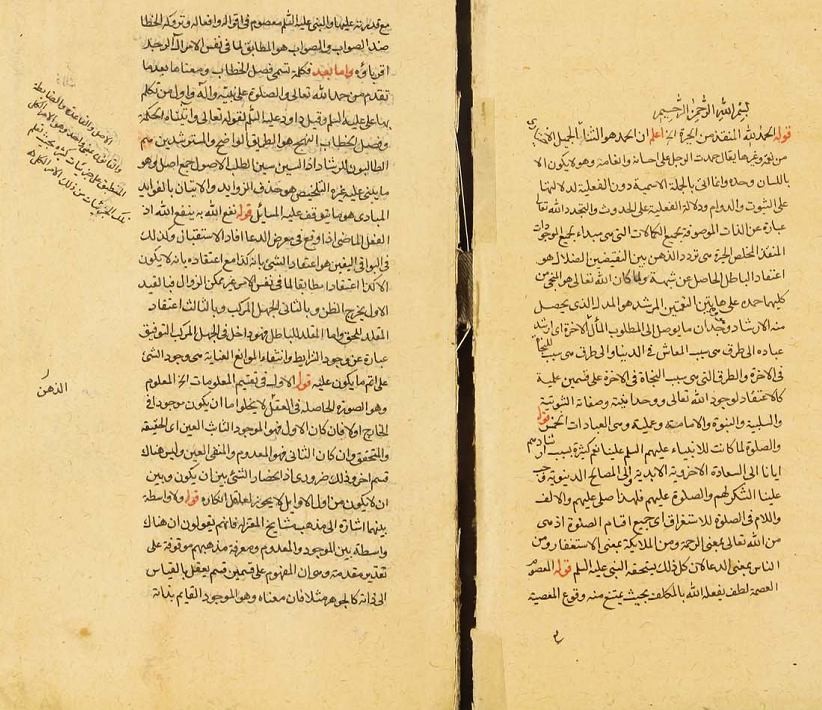 بسم الله الرحمن الرحيم
قوله الحمد لله المنقذ من الحيرة الخ اعلم ان الحمد هو الثناء الجميل الاختياري
من نعمة وغيرها يقال حمدت الرجل على احسانه وانعامه وهو لا يكون الا
باللسان وحده وانما اتى بالجملة الاسمية دون الفعلية لدلالتها
على الثبوت والدوام ودلالة الفعلية على الحدوث والتجدد الله تعالى
عبارة عن الذات الموصوفة بجميع الكمالات التي هي مبداء لجميع الموجودات
المنقذ المخلص الحيرة هي تردد الذهن بين النقيضين الضلال هو
اعتقاد الباطل الحاصل عن شبهة ولما كان الله تعالى هو المنجي من
كليهما حمده على هاتين النعمتين المرشد هو المدل الذي يحصل
منه الارشاد وجدان ما يوصل الى المطلوب المآل الآخرة اي ارشد
عباده الى طرق هي سبب المعاش في الدنيا والى طرق هي سبب للنجاة
في الآخرة والطرق التي هي سبب النجاة في الآخرة على قسمين علمية
كالاعتقاد لوجود الله تعالى ووحدانيته وصفاته الثبوتية
والسلبية والنبوة والامامة وعملية وهي العبادات الخمس قوله
والصلوة لما كانت للانبياء عليهم السلم علينا نعم كثيرة بسبب ارشادهم
ايانا الى السعادة الاخروية الابدية والى المصالح الدنيوية وجب
علينا الشكر لهم والصلوة عليهم فلهذا صلى عليهم والالف
واللام في الصلوة للاستغراق اي جميع اقسام الصلوة اذ هي
من الله تعالى بمعنى الرحمة ومن الملائكة بمعنى الاستغفار ومن
الناس بمعنى الدعا لان كل ذلك يستحقه النبي عليه السلم قوله المعصوم
العصمة لطف يفعله الله بالمكلف بحيث يمتنع منه وقوع المعصية
مع قدرته عليها والنبي عليه السلم معصوم في اقواله وافعاله وتروكه الخطا
ضد الصواب والصواب هو المطابق لما في نفس الامر آل الرجل
اقرباؤه واما بعد فكلمة تسمى فصل الخطاب ومعناها بعد ما
تقدم من حمد الله تعالى والصلوة على نبيه وآله واول من تكلم
بها علي عليه السلم وقيل داود عليه السلم لقوله تعالى وآتيناه الحكمة
وفصل الخطاب النهج هو الطريق الواضح والمسترشدين هم
الطالبون للرشاد اذ السين سين الطلب الاصول جمع اصل وهو
ما يبنى عليه غيره التلخيص هو حذف الزوايد والاتيان بالفوايد
المبادي هو ما يتوقف عليه المسائل قوله نفع الله به ينفع الله اذ
الفعل الماضي اذا وقع في معرض الدعا افاد الاستقبال وكذلك
في البواقي اليقين هو اعتقاد الشئ بانه كذا مع اعتقاده بانه لا يكون
الا كذا اعتقادا مطابقا لما في نفس الامر غير ممكن الزوال فبالقيد
الاول يخرج الظن وبالثاني الجهل المركب وبالثالث اعتقاد
المقلد للحق واما المقلد للباطل فهو داخل في الجهل المركب التوفيق
عبارة عن وجود الشرايط وانتفاء الموانع الغاية هي وجود الشئ
على اتم ما يكون عليه قوله الاول في تقسيم المعلومات الخ المعلوم
وهو الصورة الحاصلة في العقل لا يخلو اما ان يكون موجودا في
الخارج او لا فان كان الاول فهو الموجود الثابت العين اي الحقيقة
والمتحقق وان كان الثاني فهو المعدوم والمنفي العين وليس هناك
قسم اخر وذلك ضروري اذ انحصار الشئ بين ان يكون وبين
ان لا يكون من اول الاوايل لا يجوز لعاقل انكاره قوله ولا واسطة
بينهما اشارة الى مذهب مشايخ المعتزلة فانهم يقولون ان هناك
واسطة بين الموجود والمعدوم ومعرفة مذهبهم موقوفة على
تقديم مقدمة وهي ان المفهوم على قسمين قسم يعقل بالقياس
الى ذاته كالجوهر مثلا فان معناه وهو الموجود القايم بذاته
الاصل والقاعدة والضابطة
والقانون بمعنى واحد وهو الامر الكلي
المنطبق على جزئيات كثيرة بحيث تعلم
تلك الجزئيات من ذلك الامر الكلي
الذهن